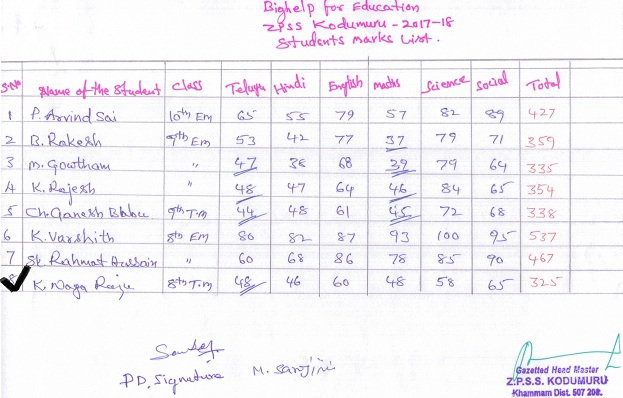 Bighelp for Education
ZPSS Kodumuru - 2017-18
Students Marks List.
S.No Name of the Student Class Telugu Hindi English maths Science Social Total
1 P. Arvind Sai 10th Em 65 55 79 57 82 89 427
2 B. Rakesh 9th Em 53 42 77 37 79 71 359
3 M. Gowtham " 47 38 68 39 79 64 335
4 K. Rajesh " 48 47 64 46 84 65 354
5 Ch. Ganesh Babu 9th T.m 44 48 61 45 72 68 338
6 K. Varshith 8th Em 80 82 87 93 100 95 537
7 Sk. Rahmat Hussain " 60 68 86 78 85 90 467
K. Naga Raju 8th T.m 48 46 60 48 58 65 325
P.D. Signature M. Sarojini
Gazetted Head Master
Z.P.S.S. KODUMURU
Khammam Dist. 507 208.